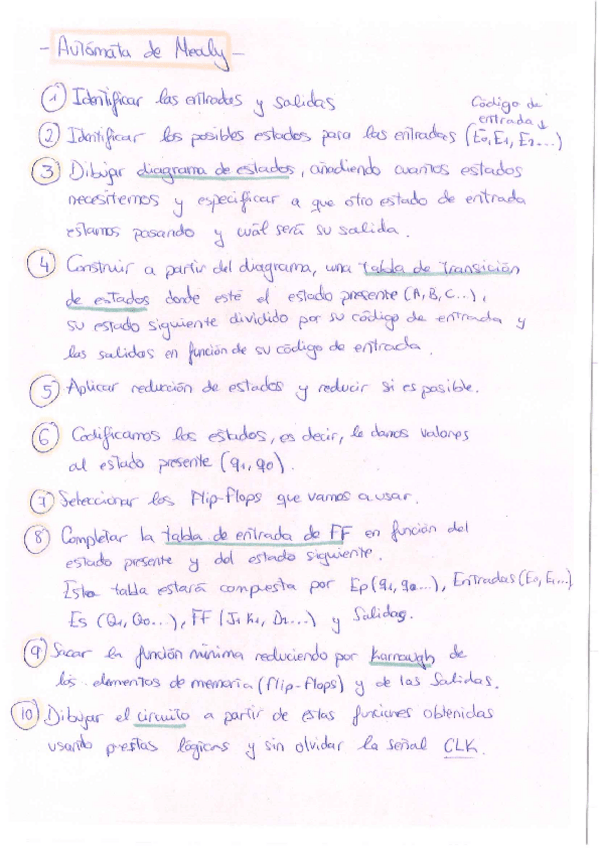 - Autómata de Mealy -
① Identificar las entradas y salidas
Código de
entrada ↓
② Identificar los posibles estados para las entradas (E0, E1, E2...)
③ Dibujar diagrama de estados, añadiendo cuantos estados
necesitemos y especificar a que otro estado de entrada
estamos pasando y cuál será su salida.
④ Construir a partir del diagrama, una tabla de transición
de estados donde esté el estado presente (A, B, C...),
su estado siguiente dividido por su código de entrada y
las salidas en función de su código de entrada.
⑤ Aplicar reducción de estados y reducir si es posible.
⑥ Codificamos los estados, es decir, le damos valores
al estado presente (q1, q0).
⑦ Seleccionar los Flip-Flops que vamos a usar.
⑧ Completar la tabla de entrada de FF en función del
estado presente y del estado siguiente.
Esta tabla estará compuesta por Ep (q1, q0...), Entradas (E0, E1...)
Es (Q1, Q0...), FF (J1 K1, D2...) y Salidas.
⑨ Sacar la función mínima reduciendo por Karnaugh de
los elementos de memoria (flip-flops) y de las Salidas.
⑩ Dibujar el circuito a partir de estas funciones obtenidas
usando puertas lógicas y sin olvidar la señal CLK.